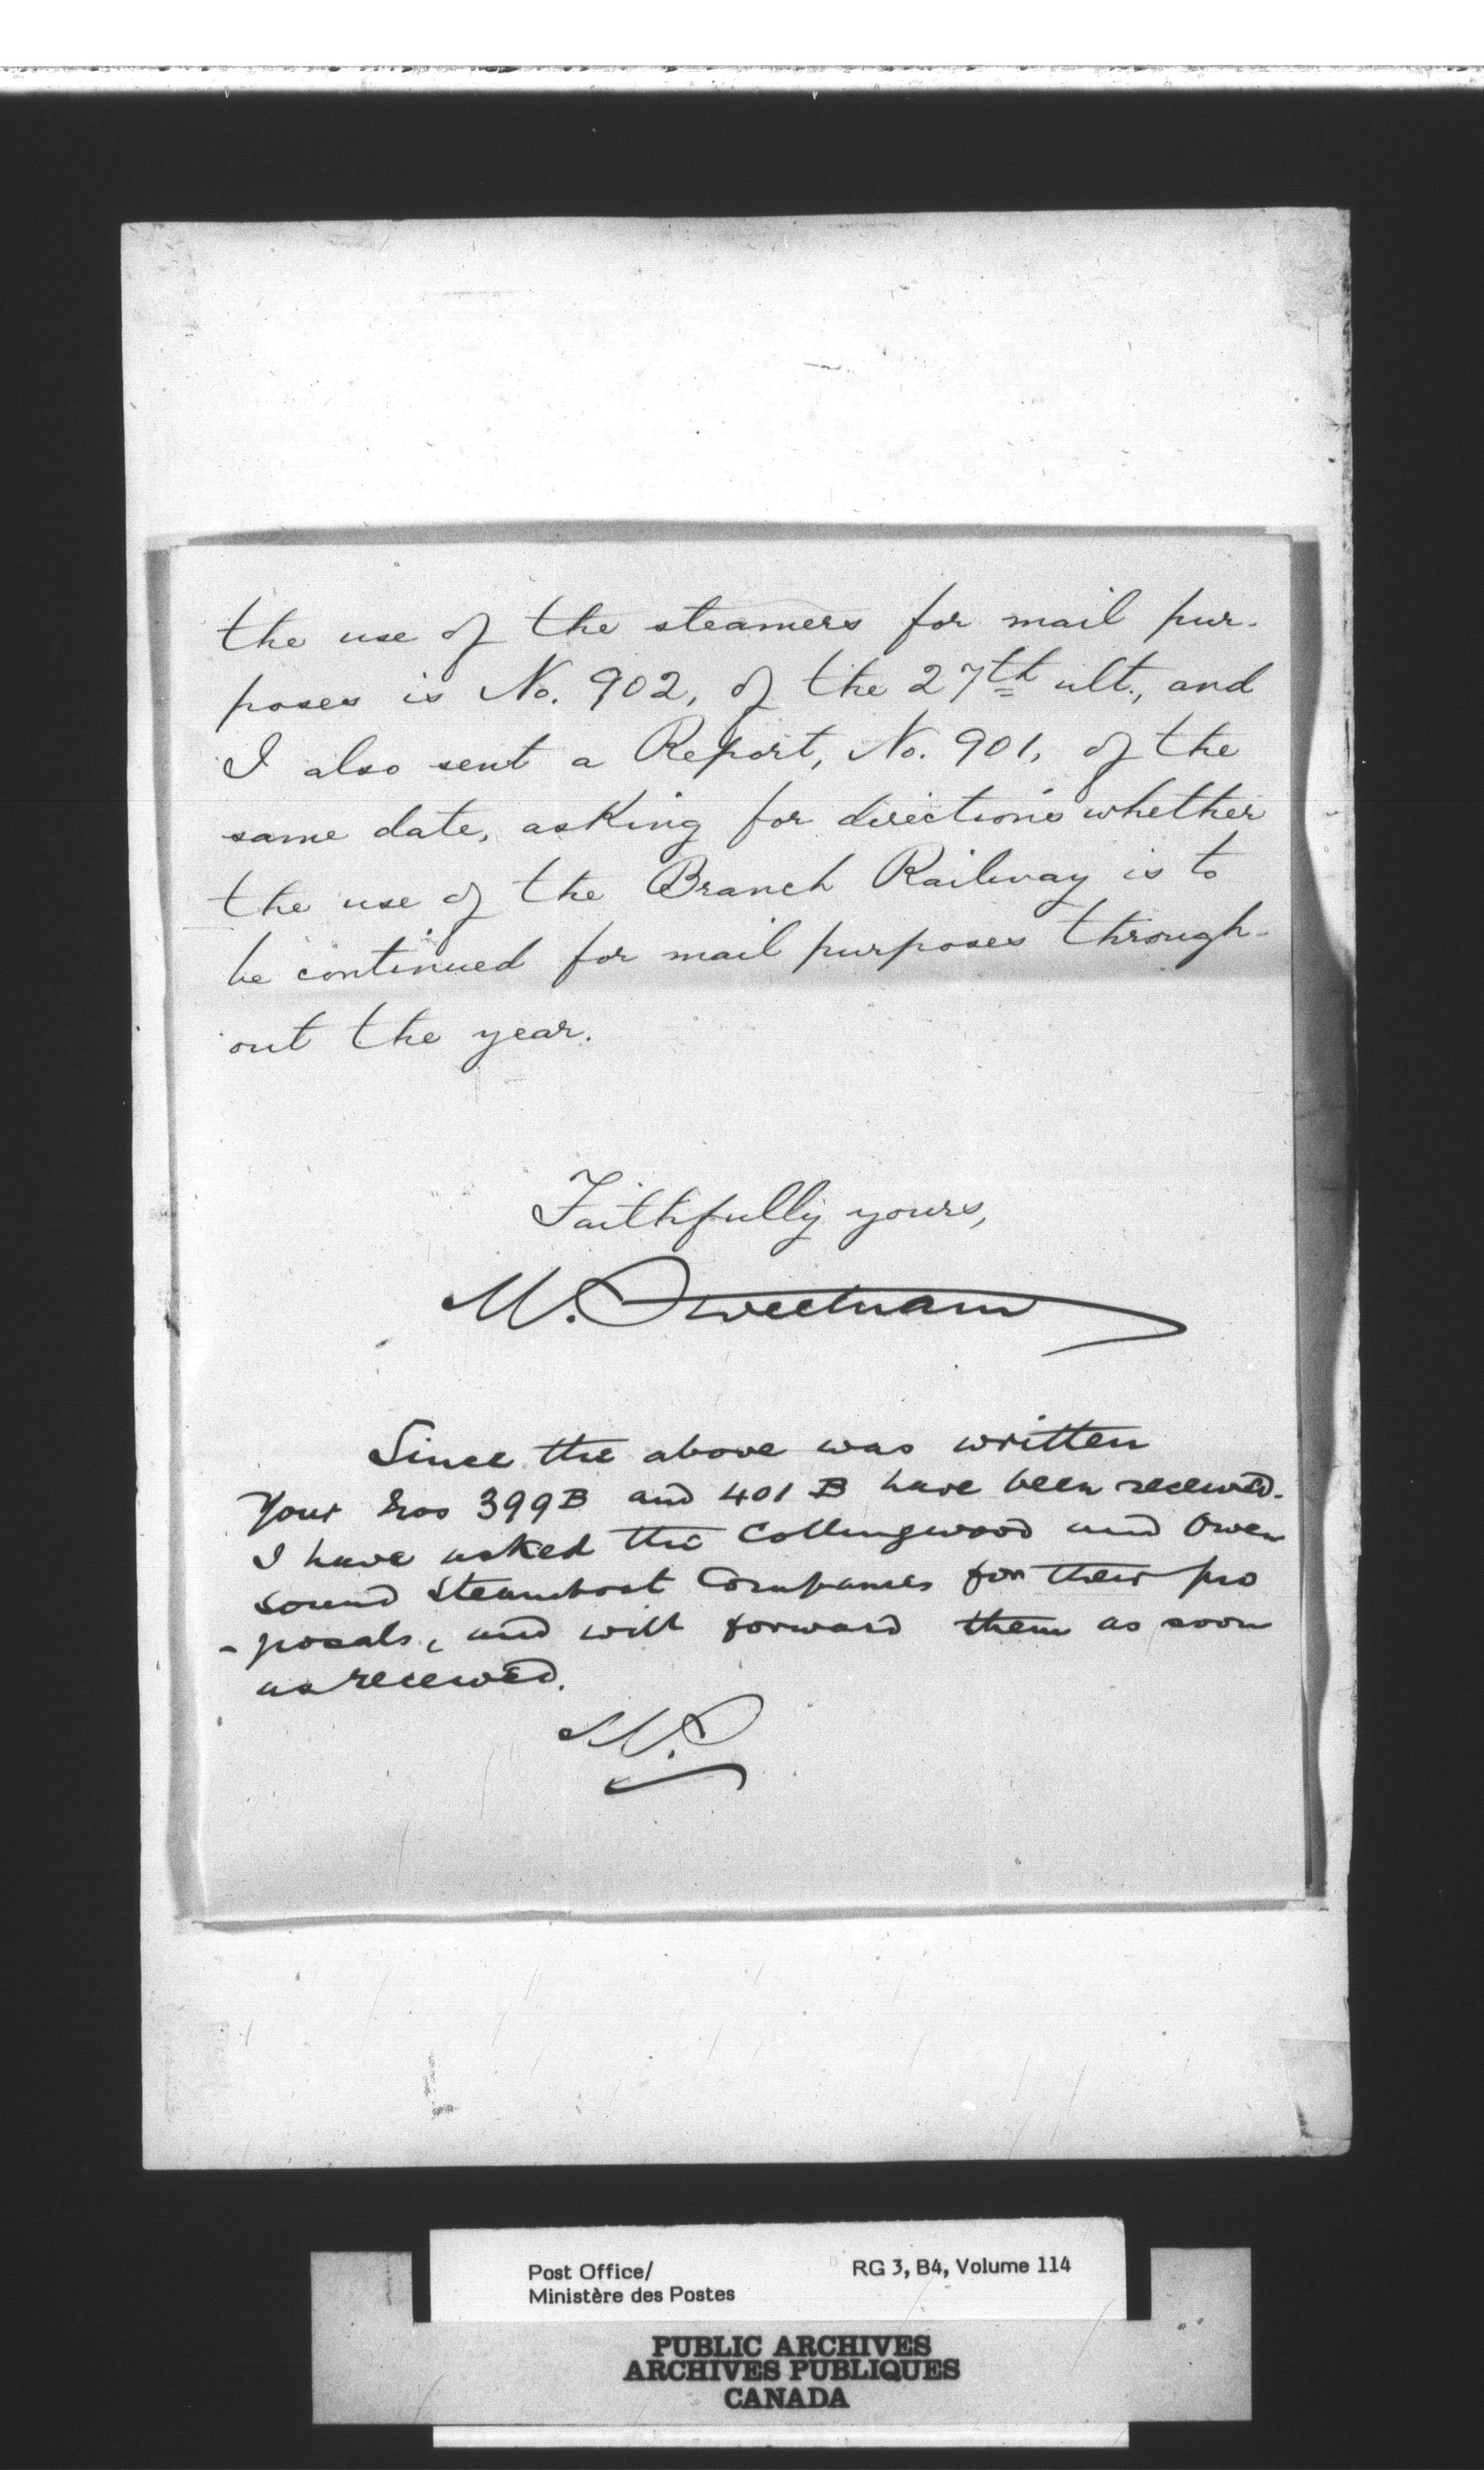 the use of the steamers for mail pur-
poses is No. 902, of the 27th ult., and
I also sent a Report, No. 901, of the
same date, asking for directions whether
the use of the Branch Railway is to
be continued for mail purposes through-
out the year.
Faithfully yours,
M. Sweetnam
Since the above was written
Your Nos 399B and 401 B have been received.
I have asked the Collingwood and Owen
Sound Steamboat Companies for their pro
-posals, and will forward them as soon
as received.
M.S
Post Office/
Ministère des Postes
RG 3, B4, Volume 114
PUBLIC ARCHIVES
ARCHIVES PUBLIQUES
CANADA